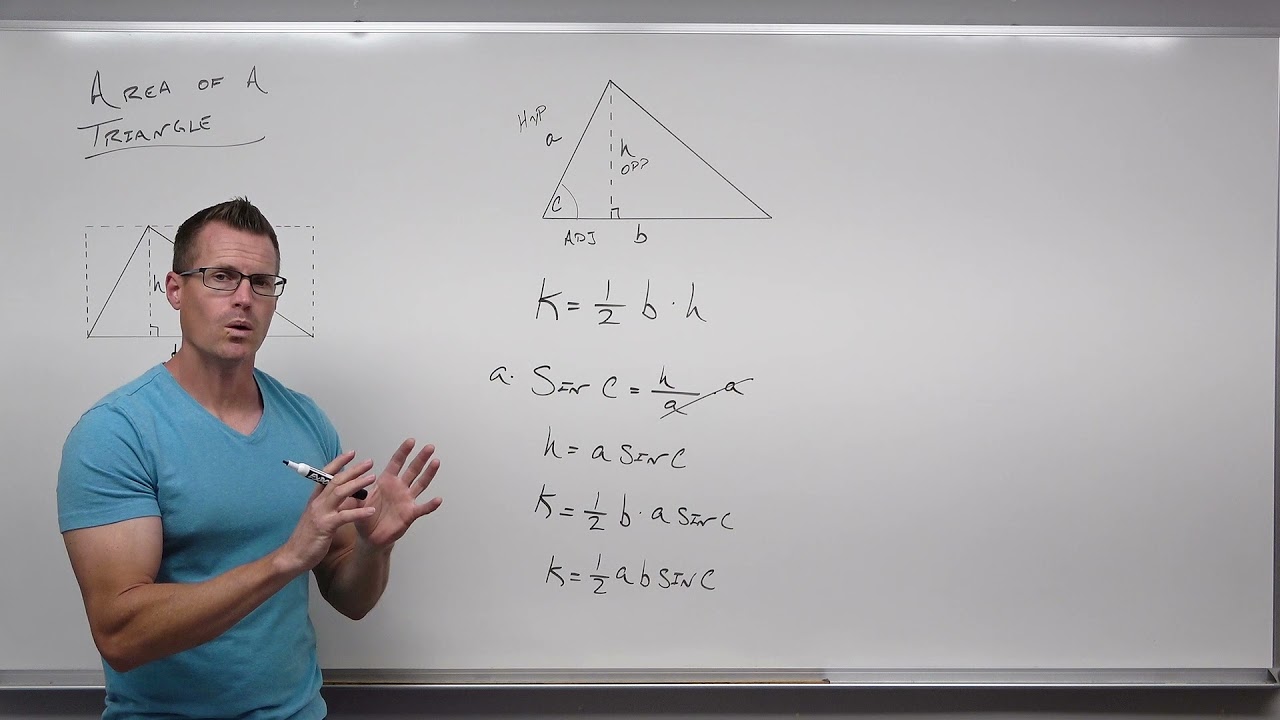 AREA OF A
TRIANGLE
h
HYP
a
h
OPP
C
ADJ
b
K = 1/2 b · h
a · SIN C = h/a · a
h = a SIN C
K = 1/2 b · a SIN C
K = 1/2 a b SIN C